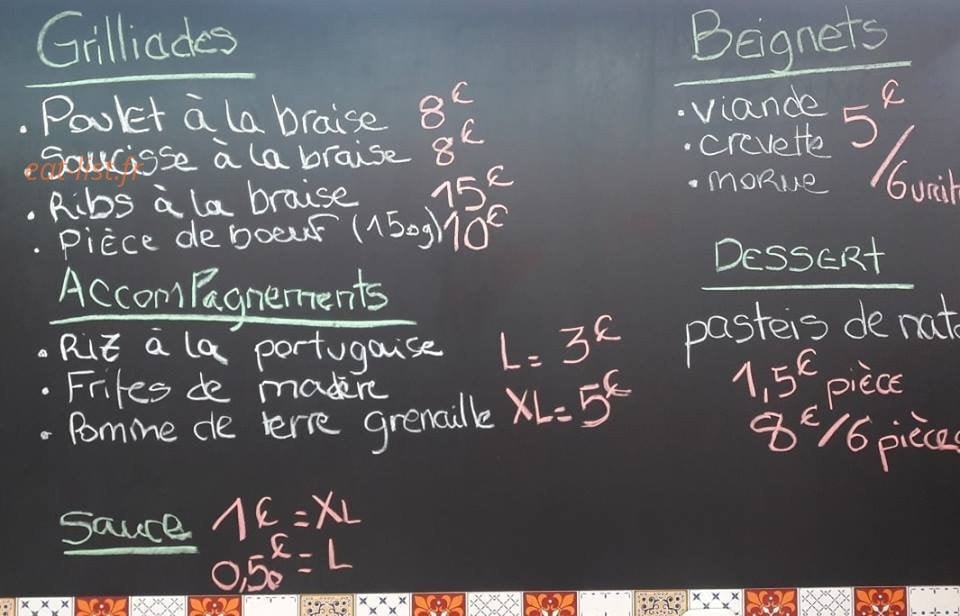 Grilliades
. Poulet à la braise 8€
. Saucisse à la braise 8€
eat-list.fr
. Ribs à la braise 15€
. pièce de boeuf (150g) 10€
Accompagnements
. Riz à la portugaise L = 3€
. Frites de madère
. Pomme de terre grenaille XL = 5€
Sauce 1€ = XL
0,50€ = L
Beignets
. viande 5€
. crevette
. morue /6 unit
Dessert
pasteis de nata
1,5€ pièce
8€/6 pièces